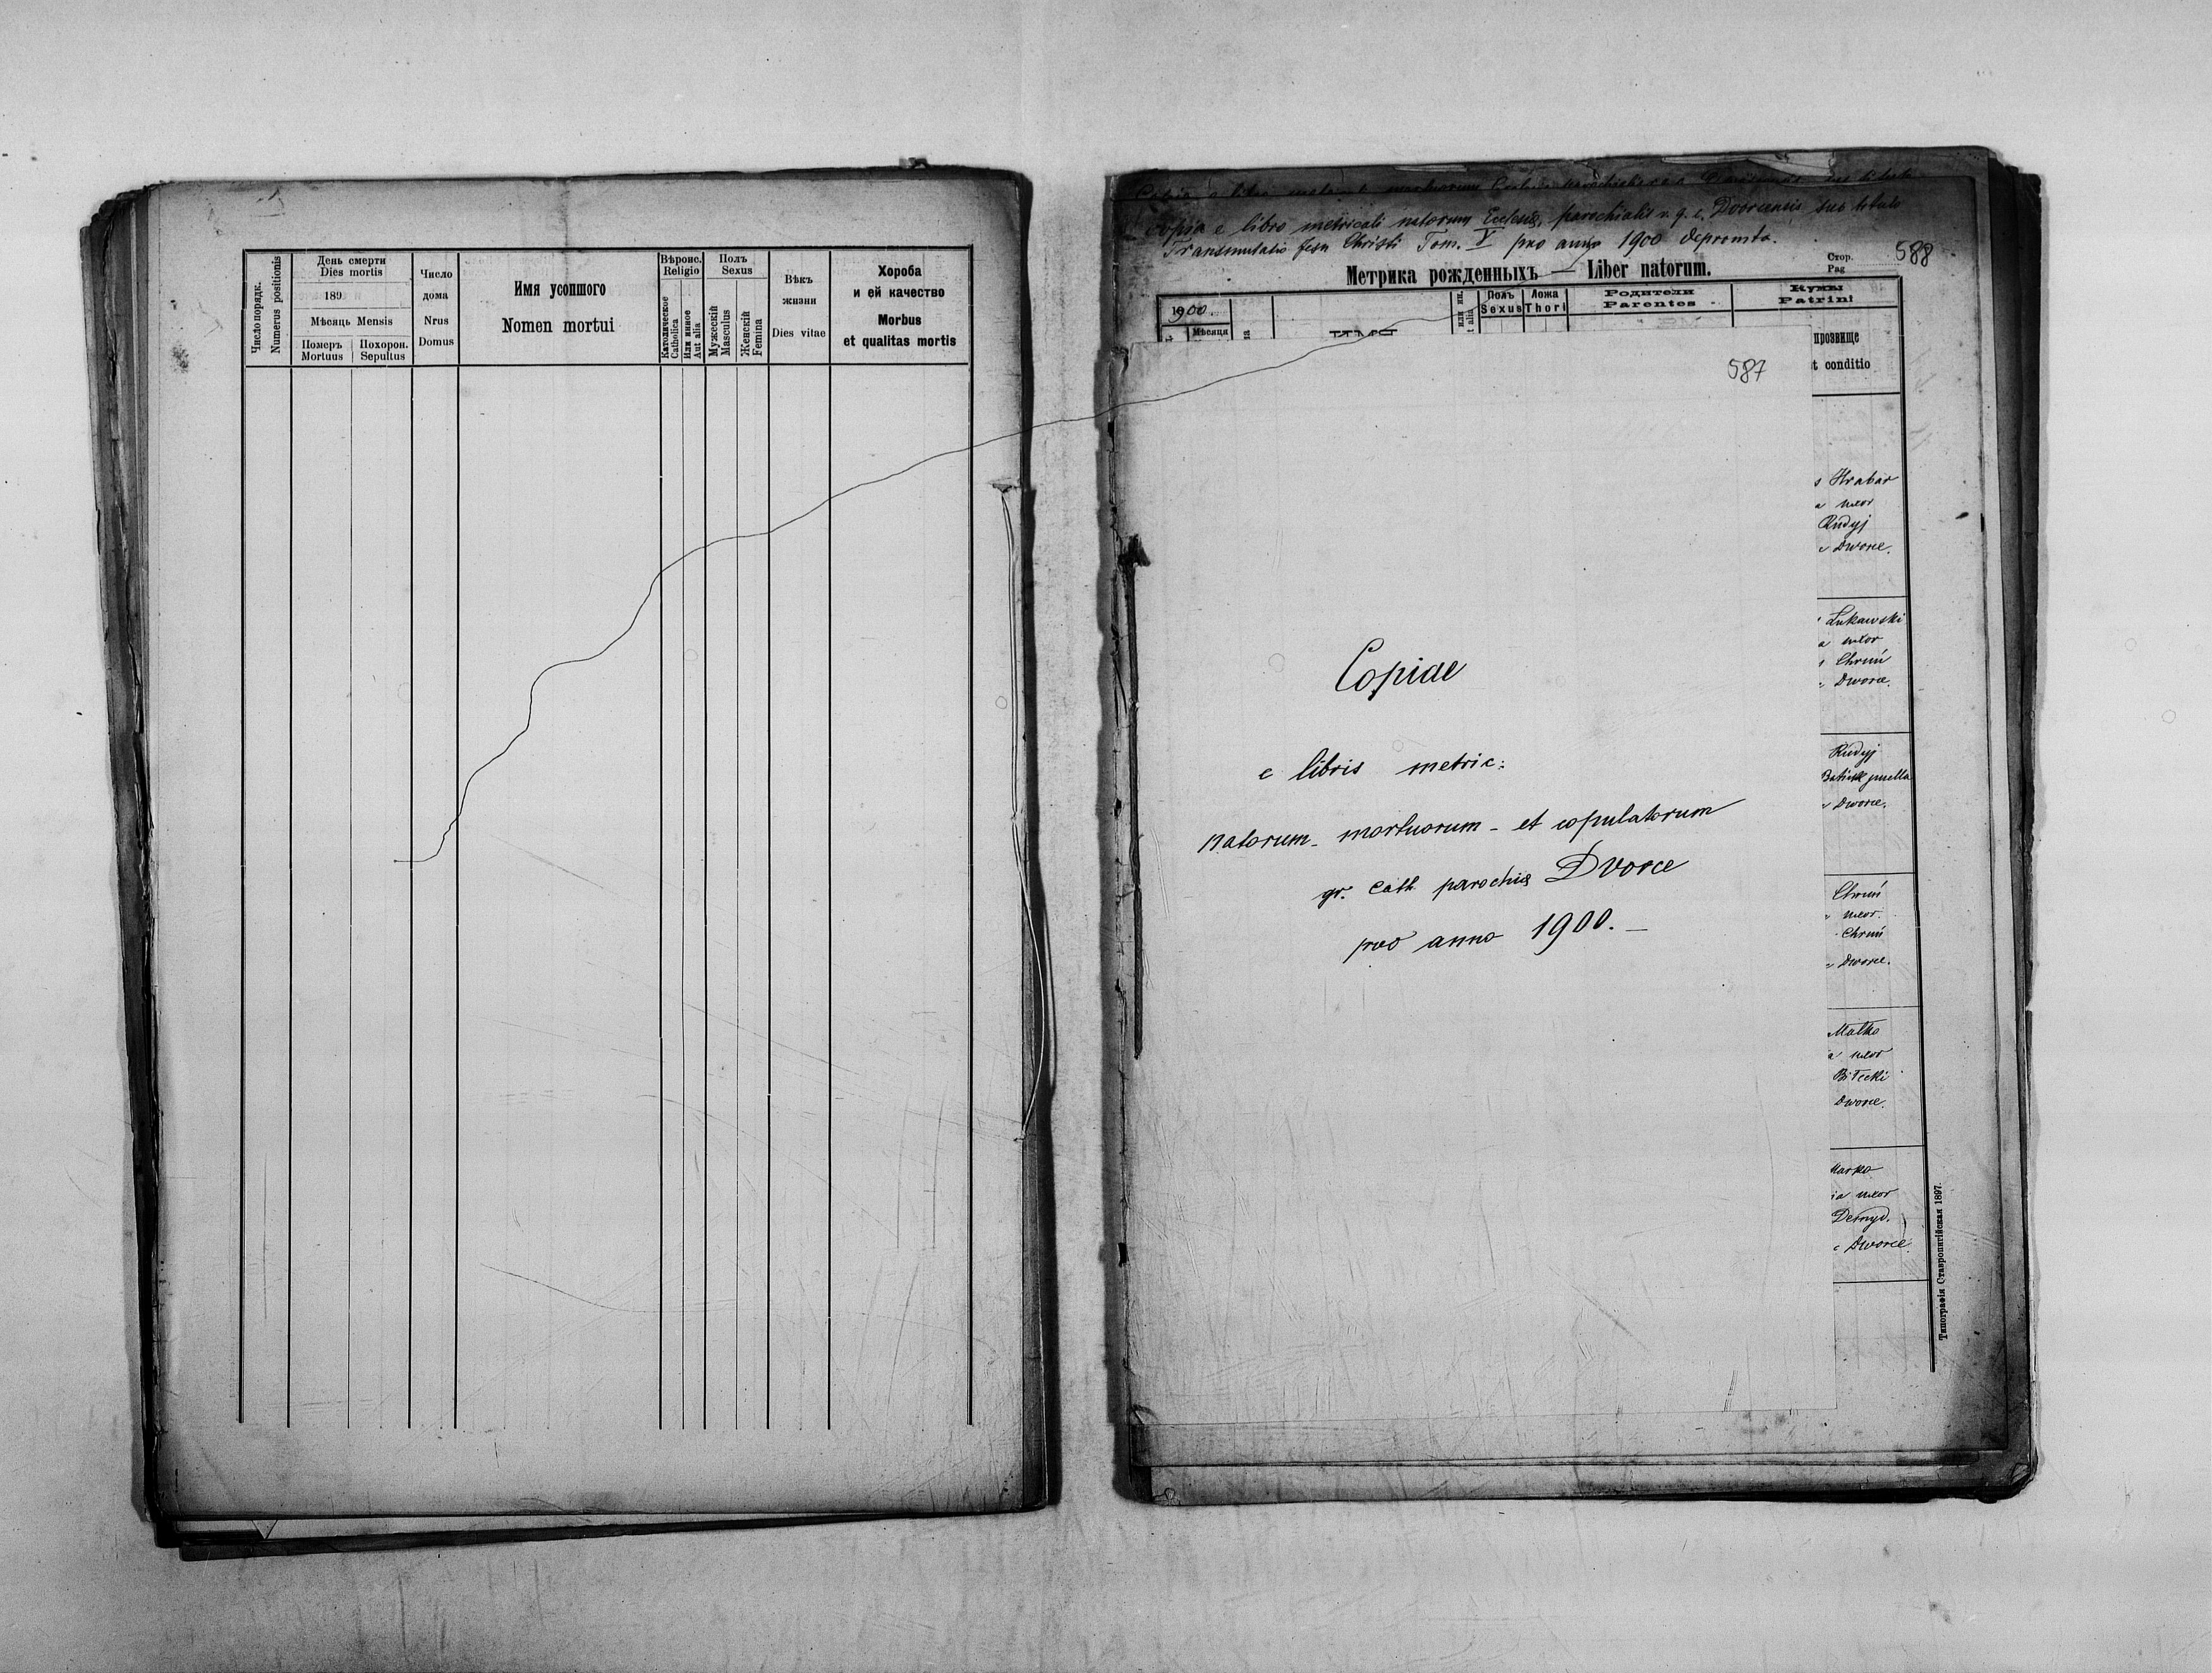 Число порядк.
Numerus positionis
День смерти
Dies mortis
189
Мѣсяць Mensis
Померъ
Mortuus
Похорон.
Sepultus
Число
дома
Nrus
Domus
Имя усопшого
Nomen mortui
Вѣроис.
Religio
Католическое
Catholica
Или иное
Aut alia
Полъ
Sexus
Мужескій
Masculus
Женскій
Femina
Вѣкъ
жизни
Dies vitae
Хороба
и ей качество
Morbus
et qualitas mortis
Copia e libro metricali natorum Ecclesiæ parochialis r. g. c. Dvorcensis sub titulo
Transmutatio Jesu Christi Tom. V pro anno 1900 depromta.
588
Стор.
Pag
Метрика рожденныхъ — Liber natorum.
1900.
Мѣсяця
Полъ
Sexus
Ложа
Thori
Родители
Parentes
Кумы
Patrini
прозвище
t conditio
587
Copiae
e libris metric:
natorum - mortuorum - et copulatorum
gr. cath parochiæ Dvorce
pro anno 1900. —
s Hrabar
a uxor
Rudyj
e Dworce.
Lukawski
a uxor
s Chruń
e Dworce.
Rudyj
puella
e Dworce.
Chruń
uxor.
Chruń
e Dworce.
Matko
a uxor
Biłecki
Dworce.
Marko
ia uxor
Demyd.
e Dworce.
Типографія Ставропигійская 1897.